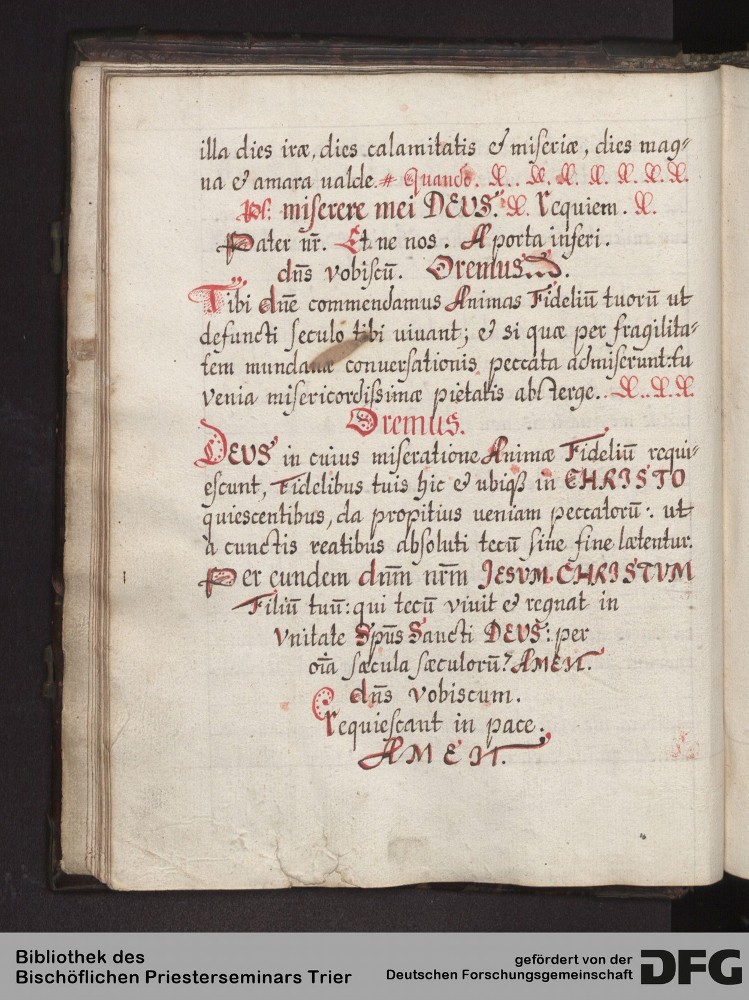 illa dies iræ, dies calamitatis & miseriæ, dies mag⸗
na & amara ualde. # Quando.
Ps: miserere mei DEUS. requiem.
Pater nr̄. Et ne nos. A porta inferi.
dn̄s vobiscū. Oremus.
Tibi dn̄e commendamus Animas Fideliū tuorū ut
defuncti seculo tibi uiuant; & si quæ per fragilita⸗
tem mundanæ conuersationis peccata admiserunt: tu
venia misericordissimæ pietatis absterge.
Oremus.
DEUS in cuius miseratione Animæ Fideliū requi⸗
escunt, Fidelibus tuis hic & ubiqꝫ in CHRISTO
quiescentibus, da propitius ueniam peccatorū: ut
à cunctis reatibus absoluti tecū sine fine lætentur.
Per eundem dnm̄ nrm̄ JESVM CHRISTVM
Filiū tuū: qui tecū viuit & regnat in
Vnitate Spūs Sancti DEVS: per
oīa sæcula sæculorū? AMEN.
dn̄s vobiscum.
requiescant in pace.
AMEN.
Bibliothek des
Bischöflichen Priesterseminars Trier
gefördert von der
Deutschen Forschungsgemeinschaft
DFG